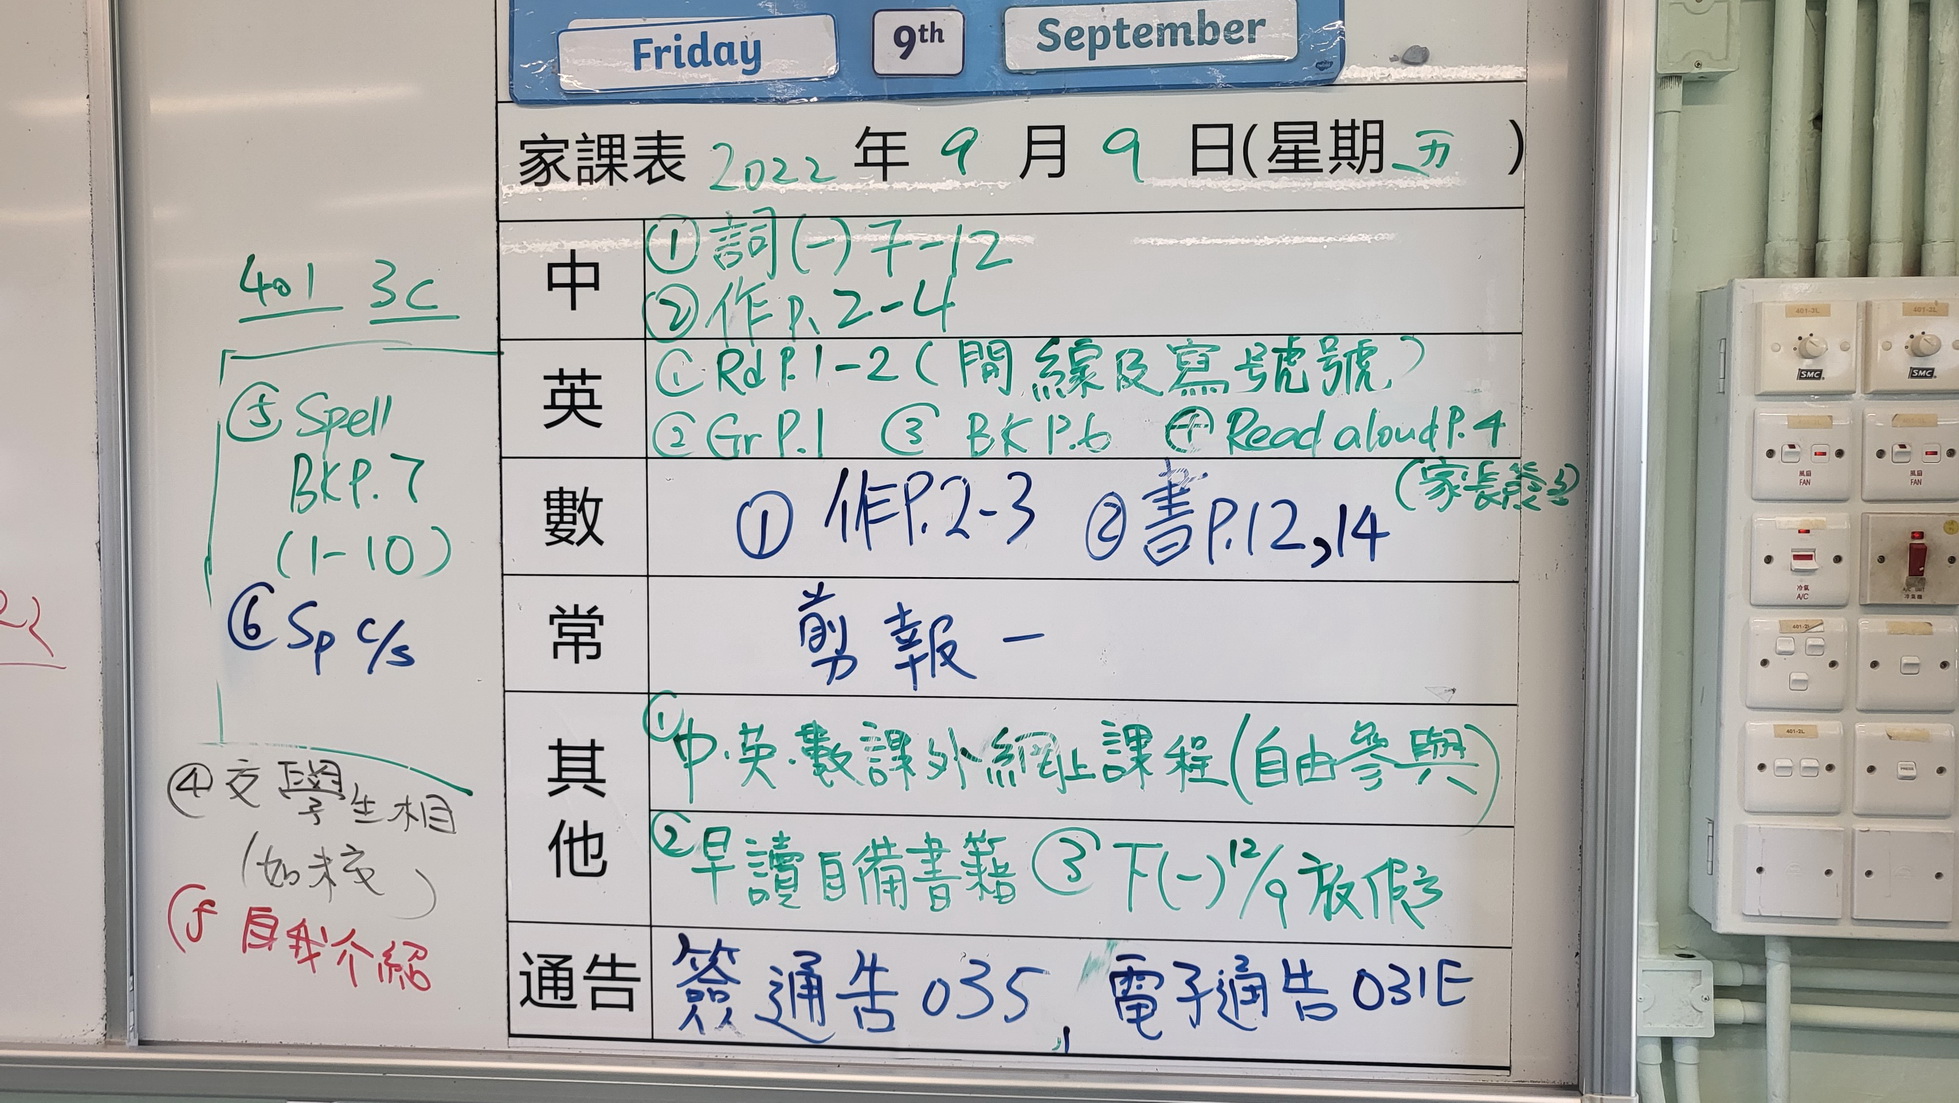 Friday 9th September
家課表 2022 年 9 月 9 日(星期 五 )
中
①詞(一)7-12
②作P.2-4
英
①Rd P.1-2(間線及寫號號)
②Gr P.1 ③BK P.6 ④Read aloud P.4
(家長簽名)
數
①作P.2-3 ②書P.12,14
常
剪報一
其他
①中.英.數課外網上課程(自由參與)
②早讀自備書籍 ③下(一)12/9放假
通告
簽通告035, 電子通告031E
401 3C
⑤Spell
BK P.7
(1-10)
⑥Sp c/s
④交學生相
(如未交)
自我介紹
401-2L
SMC
SMC
風扇
FAN
風扇
FAN
冷氣
A/C
401-2L